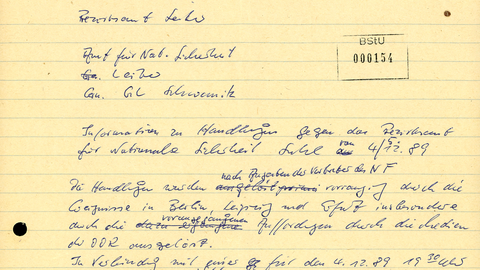 Bezirksamt Suhl
Amt für Nat. Sicherheit
BStU
000154
Gen. Leiter
Gen. GL
Informationen zu Handlungen gegen das Bezirksamt
von
für Nationale Sicherheit Suhl 4/5.12.89
nach Angaben des Vertreters des NF
Die Handlungen wurden vorrangig durch die
Ereignisse in Berlin, Leipzig und Erfurt insbesondere
vorangegangenen
durch die Aufforderungen durch die Medien
der DDR ausgelöst.
In Verbindung mit für den 4.12.89 19 30 Uhr